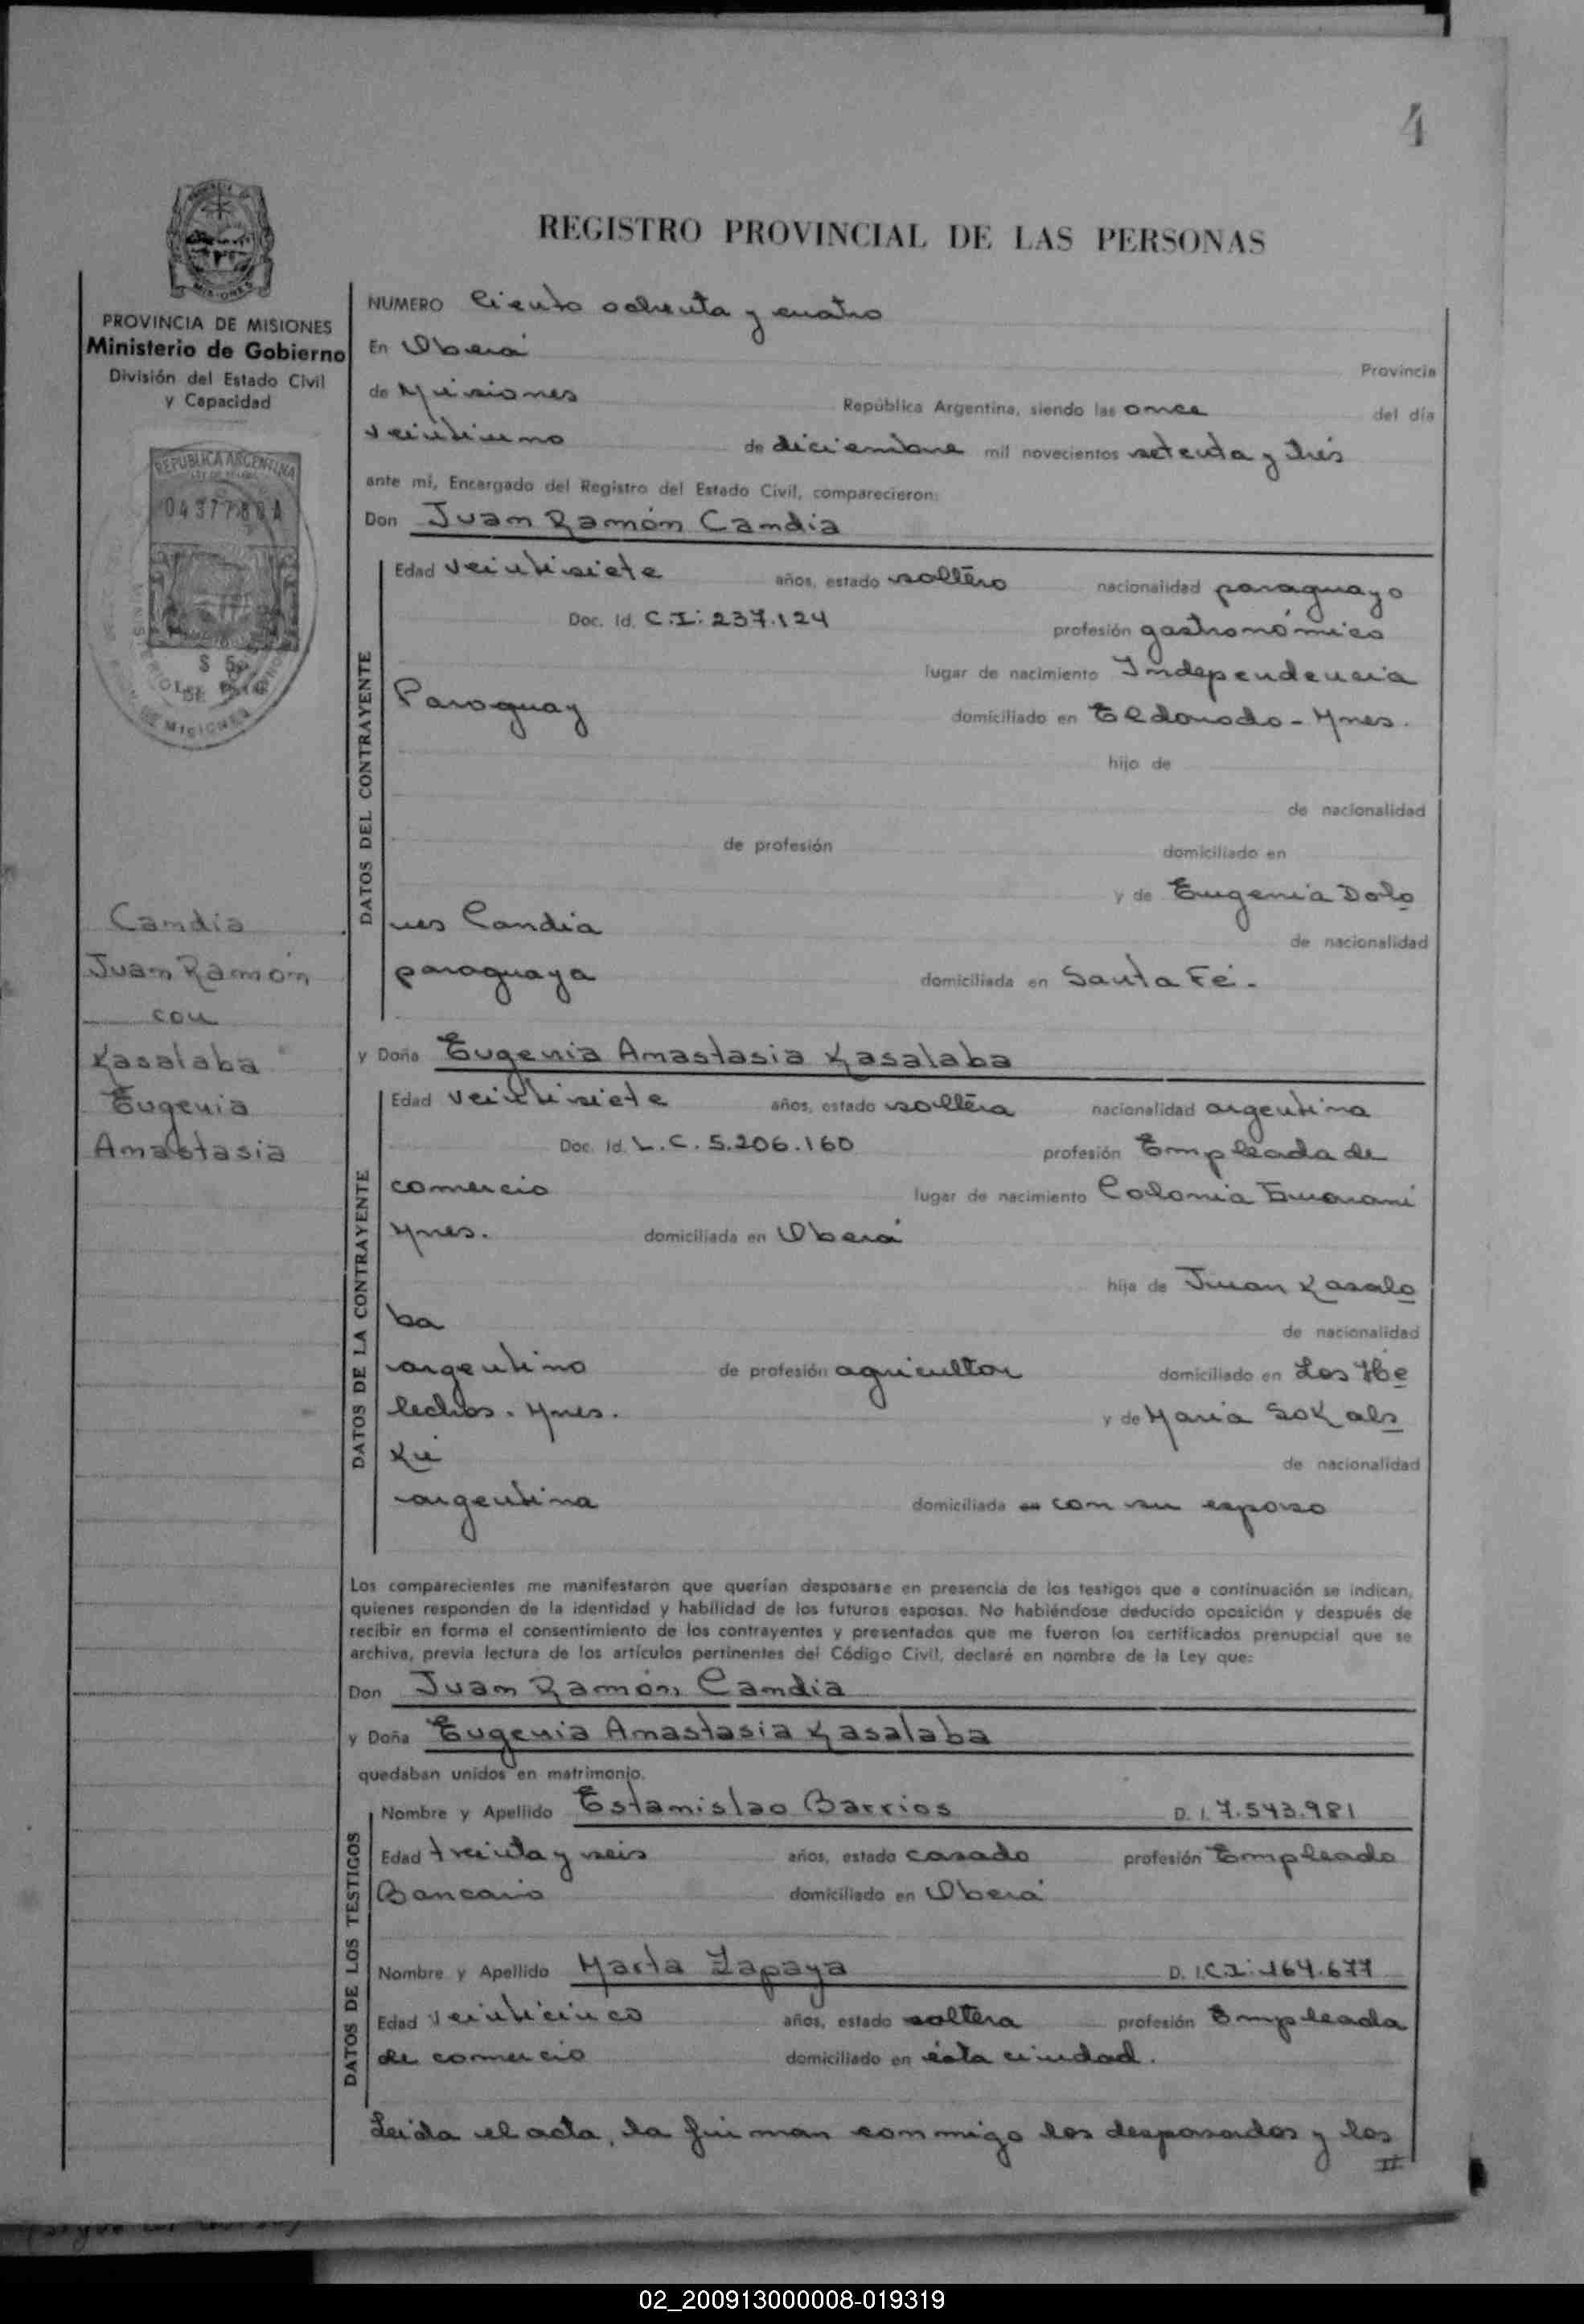 4
REGISTRO PROVINCIAL DE LAS PERSONAS
PROVINCIA DE MISIONES
Ministerio de Gobierno
División del Estado Civil
y Capacidad
REPUBLICA ARGENTINA
$ 5
Candia
Juan Ramón
con
Kasalaba
Eugenia
Anastasia
NUMERO Ciento ochenta y cuatro
En Oberá Provincia
de Misiones República Argentina, siendo las once del día
veintiuno de diciembre mil novecientos setenta y trés
ante mi, Encargado del Registro del Estado Civil, comparecieron:
Don Juan Ramón Candia
DATOS DEL CONTRAYENTE
Edad veintisiete años, estado soltero nacionalidad paraguayo
Doc. Id. C.I: 237.124 profesión gastronómico
lugar de nacimiento Independencia
Paraguay domiciliado en Eldorado - Mnes.
hijo de
de nacionalidad
de profesión domiciliado en
y de Eugenia Dolo
res Candia de nacionalidad
paraguaya domiciliada en Santa Fé.
y Doña Eugenia Anastasia Kasalaba
DATOS DE LA CONTRAYENTE
Edad veintisiete años, estado soltera nacionalidad argentina
Doc. Id. L.C. 5.206.160 profesión Empleada de
comercio lugar de nacimiento Colonia Guaraní
Mnes. domiciliada en Oberá
hija de Juan Kasala
ba de nacionalidad
argentino de profesión agricultor domiciliado en Los He
lechos. Mnes. y de María Sokals
ki de nacionalidad
argentina domiciliada con su esposo
Los comparecientes me manifestaron que querían desposarse en presencia de los testigos que a continuación se indican,
quienes responden de la identidad y habilidad de los futuros esposos. No habiéndose deducido oposición y después de
recibir en forma el consentimiento de los contrayentes y presentados que me fueron los certificados prenupcial que se
archiva, previa lectura de los artículos pertinentes del Código Civil, declaré en nombre de la Ley que:
Don Juan Ramón Candia
y Doña Eugenia Anastasia Kasalaba
quedaban unidos en matrimonio.
DATOS DE LOS TESTIGOS
Nombre y Apellido Estanislao Barrios D. I. 7.543.981
Edad treinta y seis años, estado casado profesión Empleado
Bancario domiciliado en Oberá
Nombre y Apellido Marta Zapaya D. I. C.I: 164.677
Edad veinticinco años, estado soltera profesión Empleada
de comercio domiciliado en ésta ciudad.
Leida el acta, la firman conmigo los desposados y los
II
02_200913000008-019319